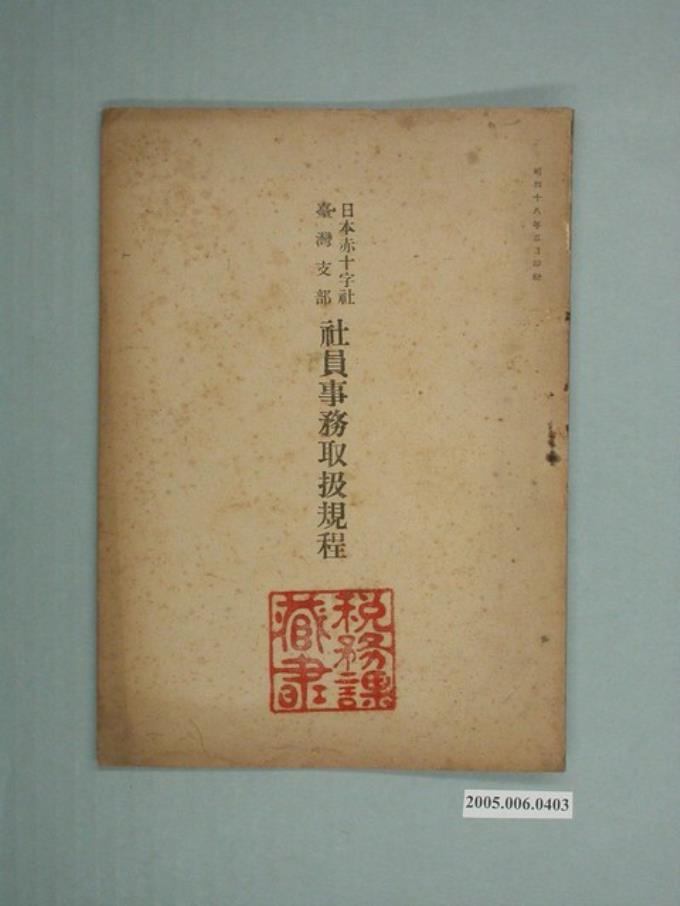 昭和十八年三月印刷
日本赤十字社
臺灣支部
社員事務取扱規程
税務課
藏書
2005.006.0403